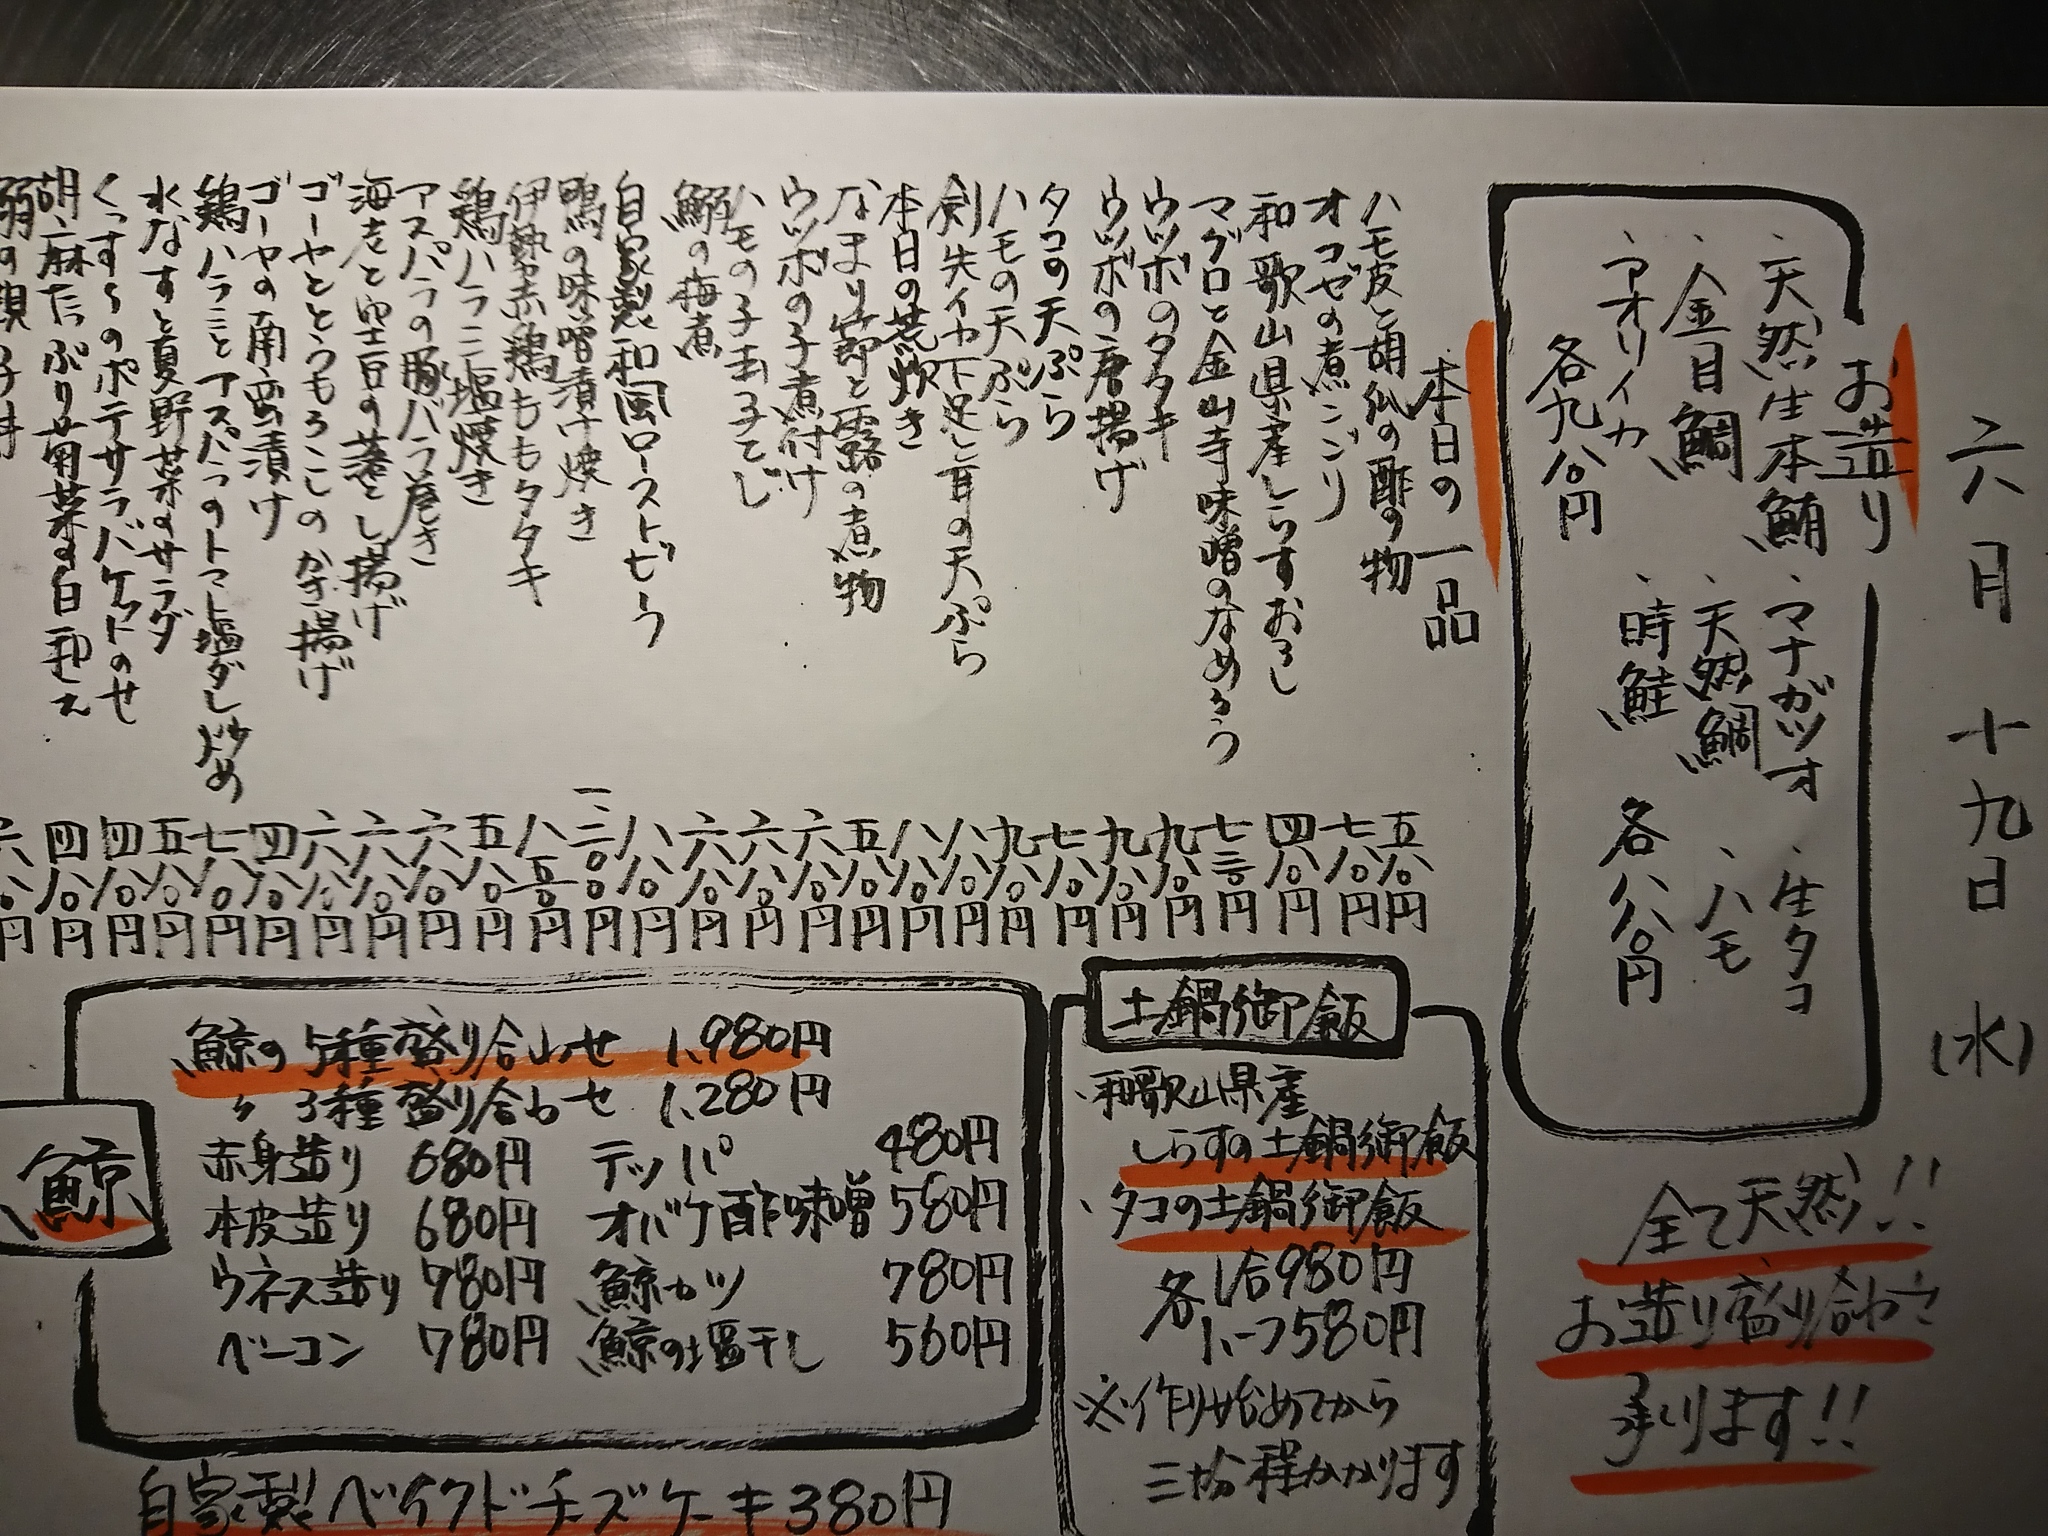 六月十九日(水)
お造り
・天然生本鮪 ・マナガツオ ・生タコ
・金目鯛 ・天然鯛 ・ハモ
・アオリイカ ・時鮭
各九八〇円 各八八〇円
全て天然!!
お造り盛り合わせ
承ります!!
本日の一品
ハモ皮と胡瓜の酢の物 五八〇円
オコゼの煮こごり 七八〇円
和歌山県産しらすおろし 四八〇円
マグロと金山寺味噌のなめろう 七三〇円
ウツボのタタキ 九八〇円
ウツボの唐揚げ 九八〇円
タコの天ぷら 七八〇円
ハモの天ぷら 九八〇円
剣先イカ下足と耳の天ぷら 八八〇円
本日の荒炊き 八八〇円
なまり節と蕗の煮物 五八〇円
ウツボの子煮付け 六八〇円
ハモの子玉子とじ 六八〇円
鰯の梅煮 六八〇円
自家製和風ローストビーフ 八八〇円
鴨の味噌漬け焼き 一、二〇〇円
伊勢赤鶏ももタタキ 八五〇円
鶏ハラミ塩焼き 五八〇円
アスパラの豚バラ巻き 六八〇円
海老と空豆の落とし揚げ 六八〇円
ゴーヤととうもろこしのかき揚げ 六八〇円
ゴーヤの南蛮漬け 四八〇円
鶏ハラミとアスパラのトマト塩ダレ炒め 七八〇円
水なすと夏野菜のサラダ 五八〇円
のポテサラバケットのせ 四八〇円
胡麻たっぷり菊菜の白和え 四八〇円
六八〇円
土鍋御飯
・和歌山県産
しらすの土鍋御飯
・タコの土鍋御飯
各 1合980円
ハーフ580円
※作り始めてから
三十分程かかります
鯨
鯨の5種盛り合わせ 1,980円
〃 3種盛り合わせ 1,280円
赤身造り 680円 テッパ 480円
本皮造り 680円 オバケ酢味噌 580円
ウネス造り 780円 鯨カツ 780円
ベーコン 780円 鯨の塩干し 560円
自家製ベイクドチーズケーキ380円